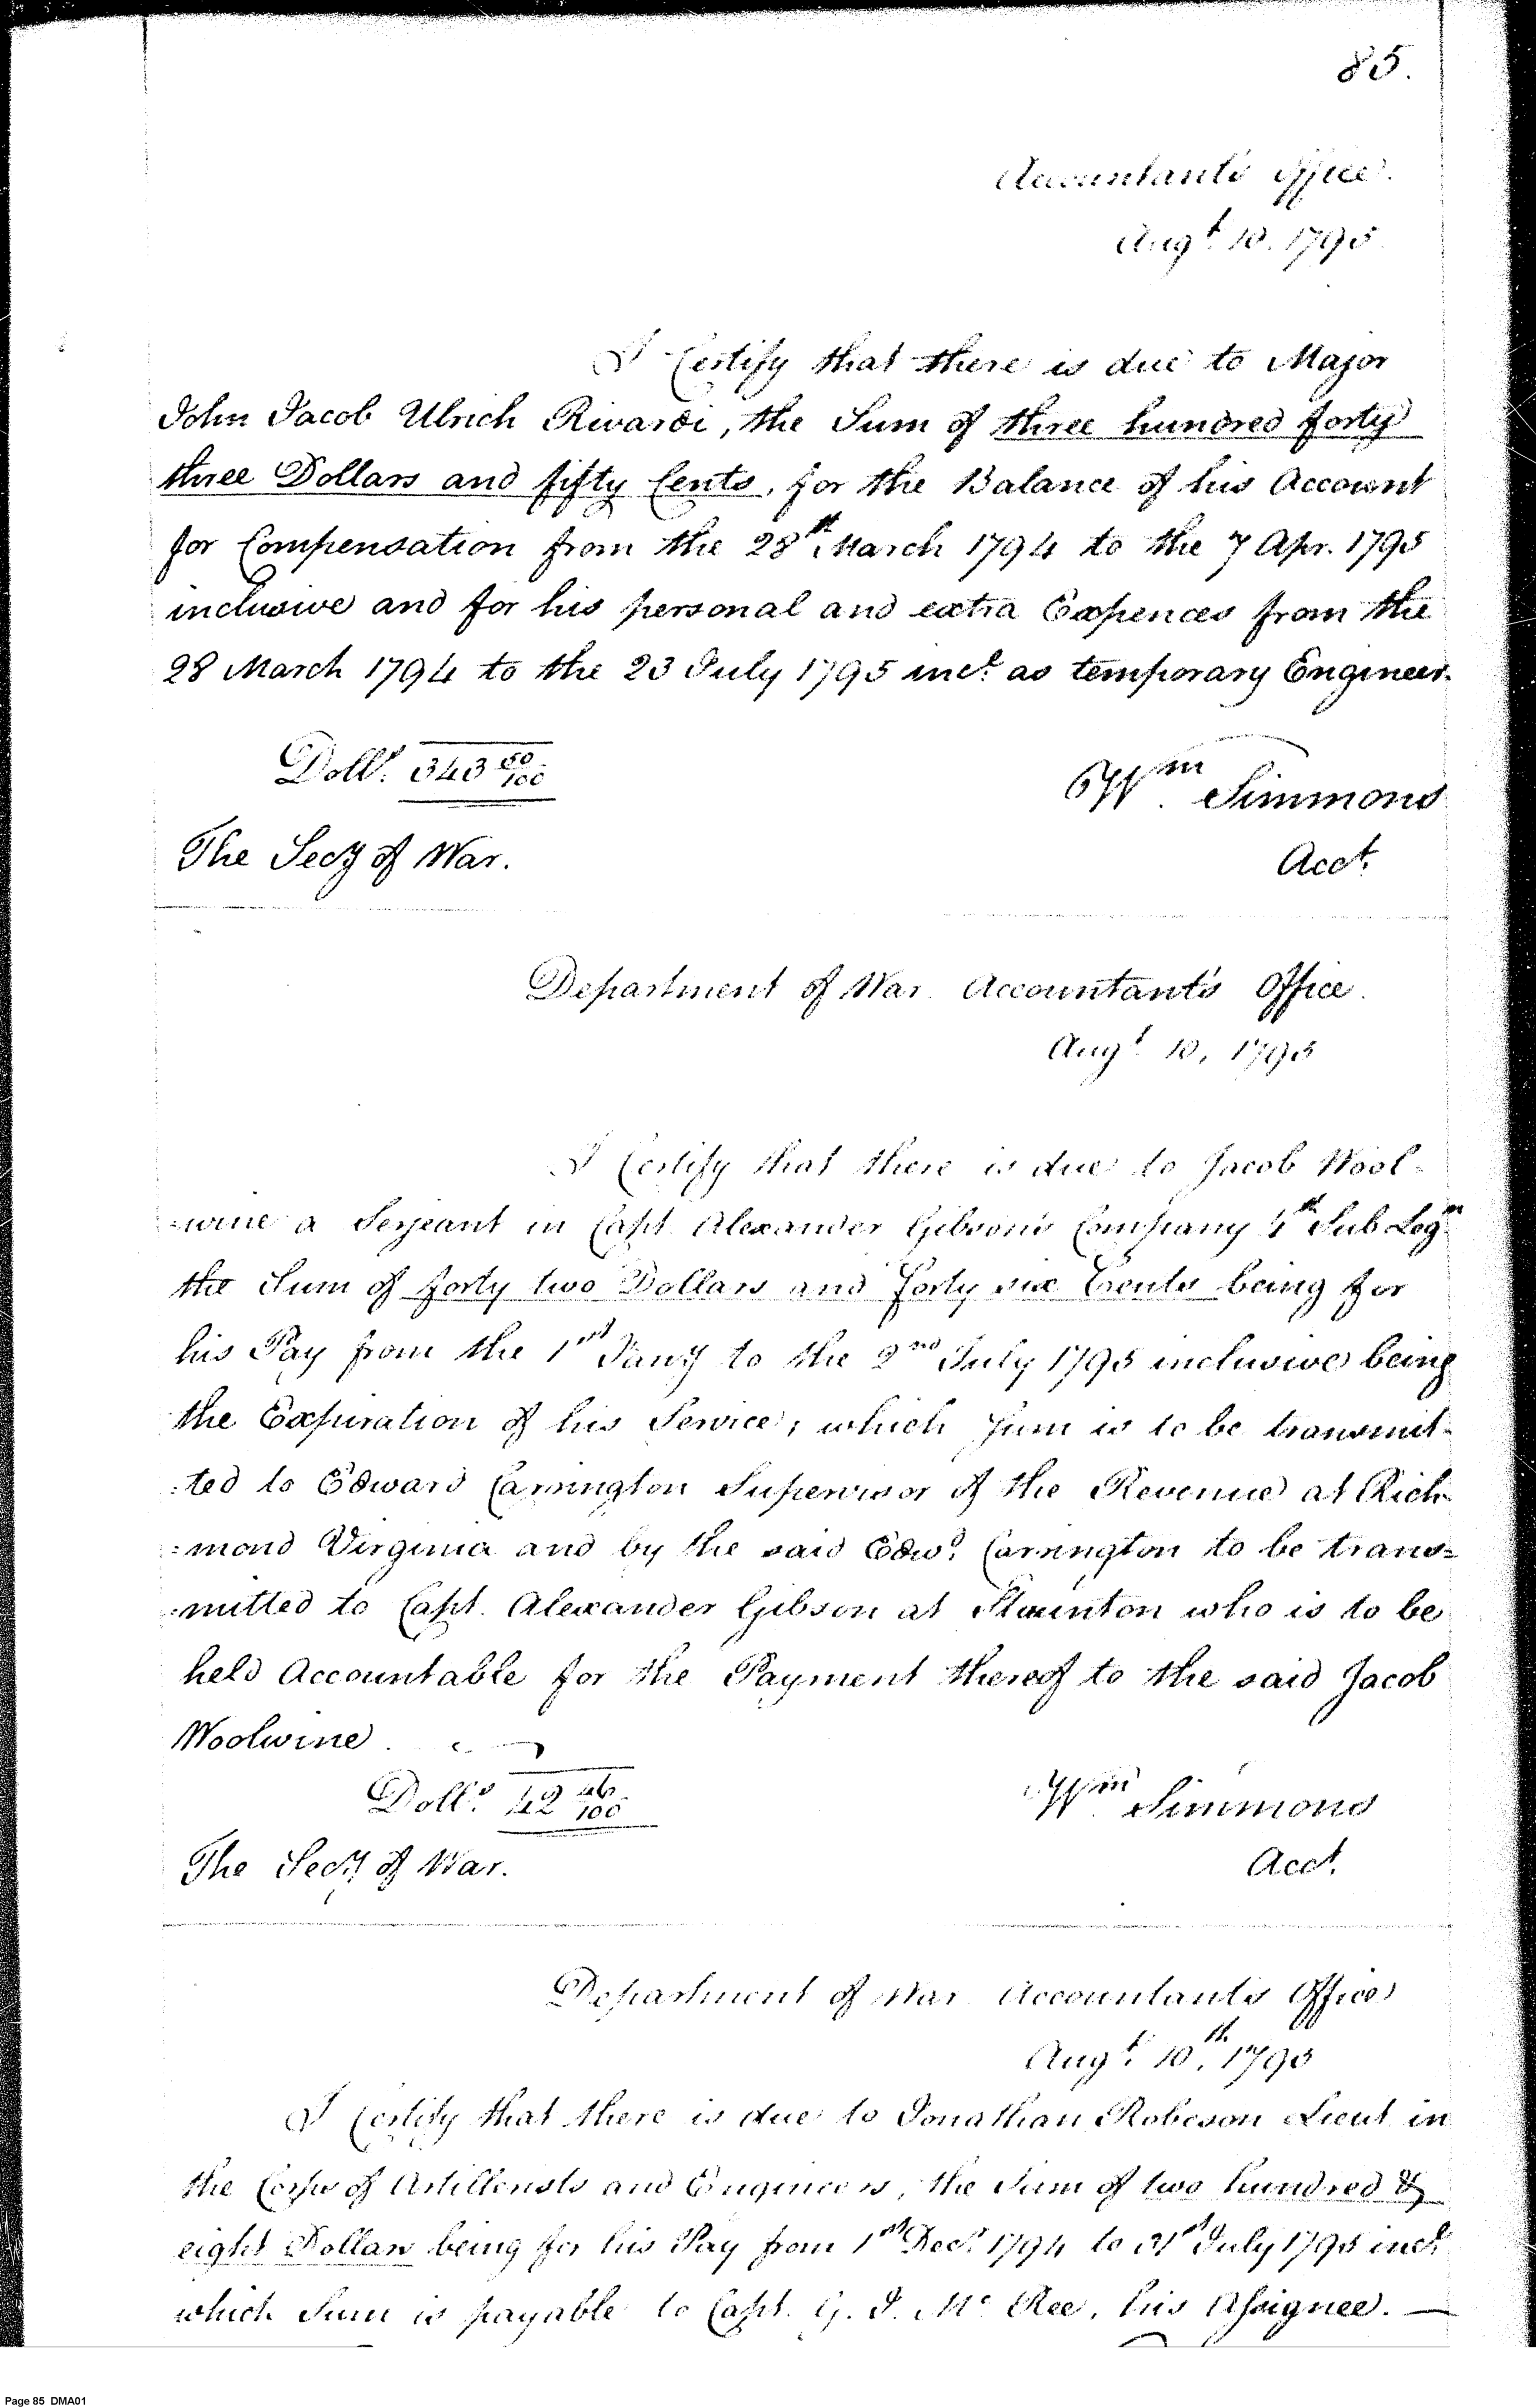 85.
Accountant's Office.
Augt. 10. 1795.
I Certify that there is due to Major
John Jacob Ulrich Rivardi, the Sum of three hundred forty
three Dollars and fifty Cents, for the Balance of his Account
for Compensation from the 28th March 1794 to the 7 Apr. 1795
inclusive and for his personal and extra Expences from the
28 March 1794 to the 23 July 1795 incl. as temporary Engineer.
Dolls. 343 50/100
Wm. Simmons
The Secy of War.
Acct.
Department of War Accountant's Office.
Augt. 10, 1795
I Certify that there is due to Jacob Wool-
-wine a Serjeant in Capt. Alexander Gibson's Company 4th Sub Legn.
the Sum of forty two Dollars and Forty six Cents being for
his Pay from the 1st Jany to the 2nd July 1795 inclusive being
the Expiration of his Service; which Sum is to be transmit-
:ted to Edward Carrington Supervisor of the Revenue at Rich-
:mond Virginia and by the said Edwd. Carrington to be trans=
:mitted to Capt. Alexander Gibson at Staunton who is to be
held Accountable for the Payment thereof to the said Jacob
Woolwine.
Dolls. 42 46/100
Wm. Simmons
The Secy of War.
Acct.
Department of War Accountant's Office
Augt. 10th, 1795
I Certify that there is due to Jonathan Robeson Lieut in
the Corps of Artillerists and Engineers, the Sum of two hundred &
eight Dollars being for his Pay from 1st Decr. 1794 to 31st July 1795 incl.
which Sum is payable to Capt. G. J. Mc Ree, his Assignee. —
Page 85 DMA01